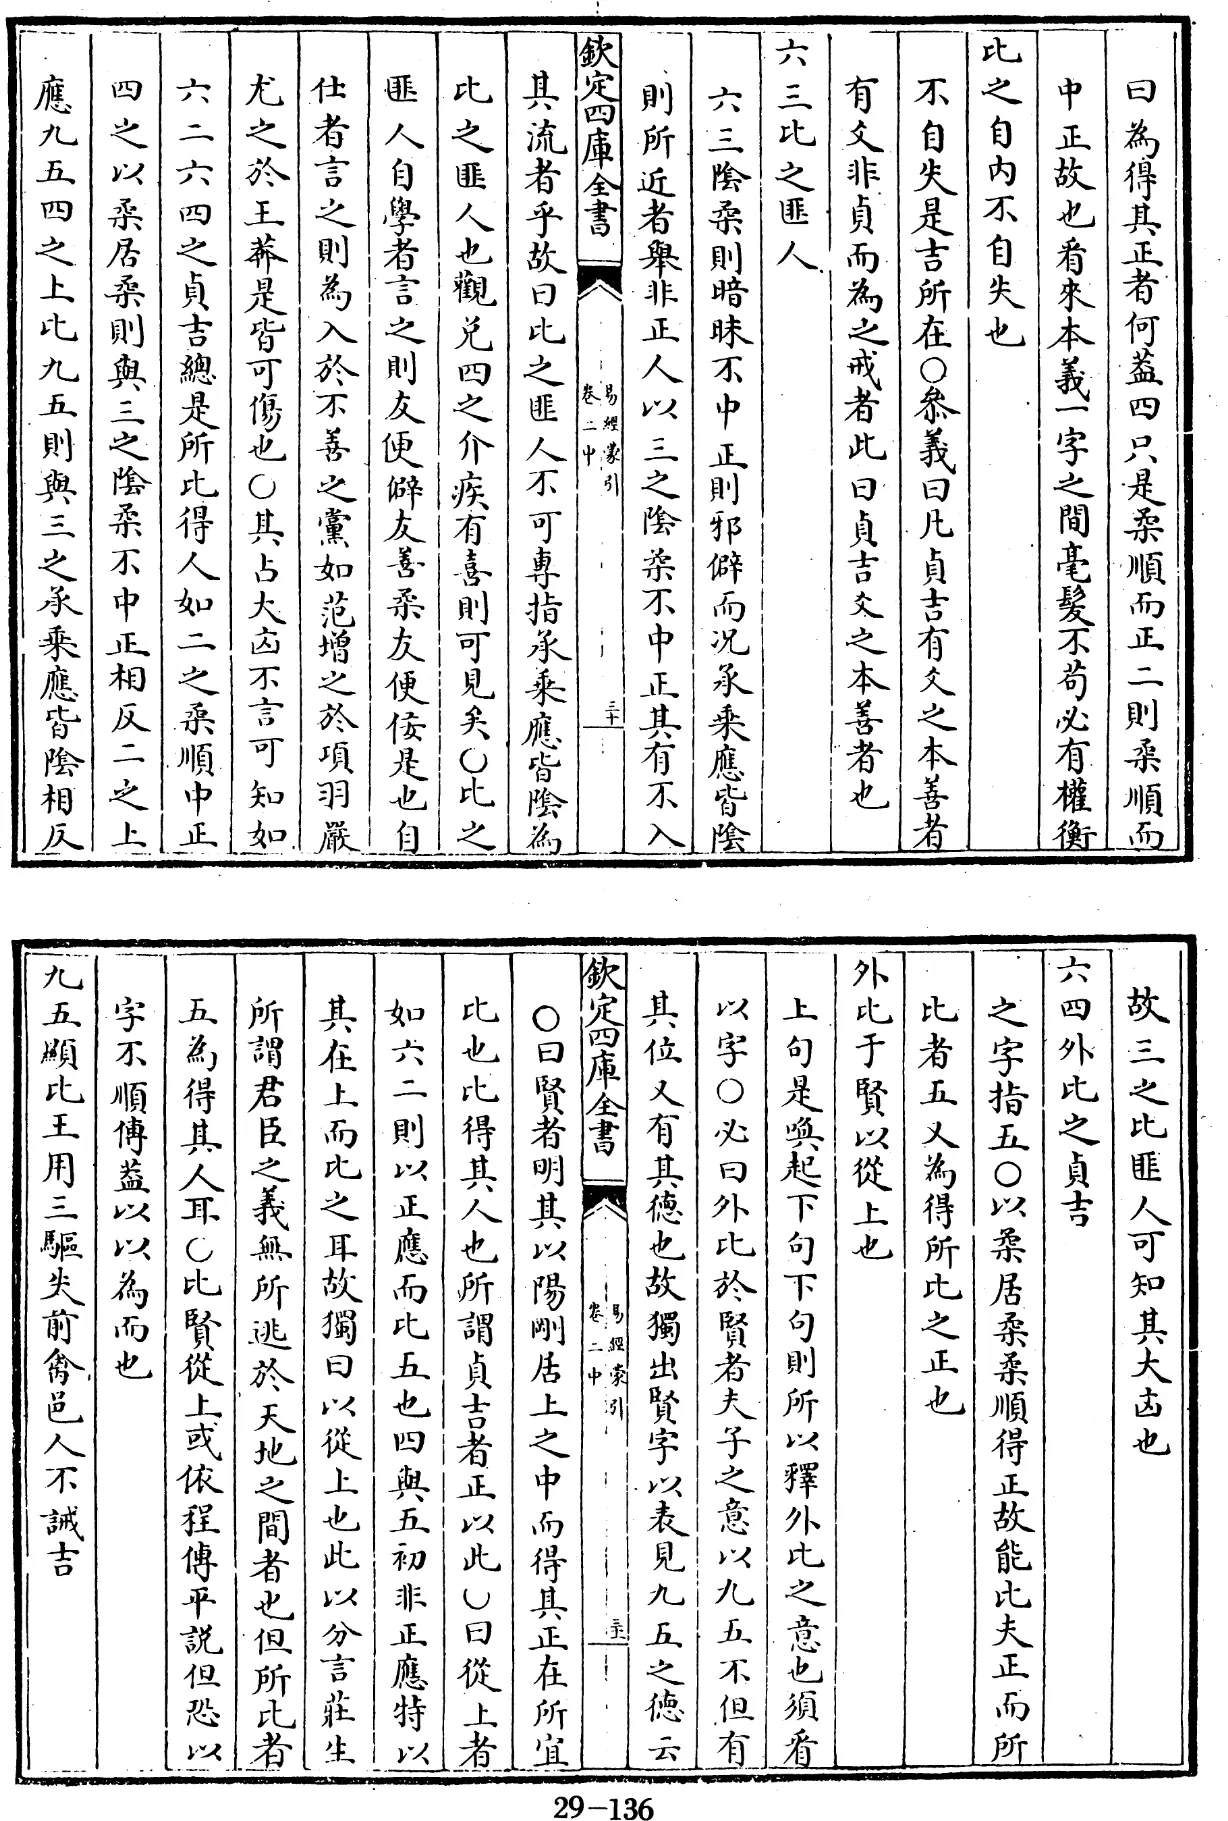 曰為得其正者何葢四只是柔順而正二則柔順而
中正故也看來本義一字之間毫髮不苟必有權衡
比之自内不自失也
不自失是吉所在○叅義曰凡貞吉有爻之本善者
有爻非貞而為之戒者此曰貞吉爻之本善者也
六三比之匪人
六三陰柔則暗昧不中正則邪僻而况承乘應皆陰
則所近者舉非正人以三之陰柔不中正其有不入
欽定四庫全書
易經蒙引
卷二中
三十
其流者乎故曰比之匪人不可專指承乘應皆陰為
比之匪人也觀兑四之介疾有喜則可見矣○比之
匪人自學者言之則友便僻友善柔友便佞是也自
仕者言之則為入於不善之黨如范增之於項羽嚴
尤之於王莽是皆可傷也○其占大凶不言可知如
六二六四之貞吉總是所比得人如二之柔順中正
四之以柔居柔則與三之陰柔不中正相反二之上
應九五四之上比九五則與三之承乘應皆陰相反
故三之比匪人可知其大凶也
六四外比之貞吉
之字指五○以柔居柔柔順得正故能比夫正而所
比者五又為得所比之正也
外比于賢以從上也
上句是喚起下句下句則所以釋外比之意也須看
以字○必曰外比於賢者夫子之意以九五不但有
其位又有其德也故獨出賢字以表見九五之德云
欽定四庫全書
易經蒙引
卷二中
○曰賢者明其以陽剛居上之中而得其正在所宜
比也比得其人也所謂貞吉者正以此○曰從上者
如六二則以正應而比五也四與五初非正應特以
其在上而比之耳故獨曰以從上也此以分言莊生
所謂君臣之義無所逃於天地之間者也但所比者
五為得其人耳○比賢從上或依程傳平説但恐以
字不順傳葢以以為而也
九五顯比王用三驅失前禽邑人不誡吉
29-136